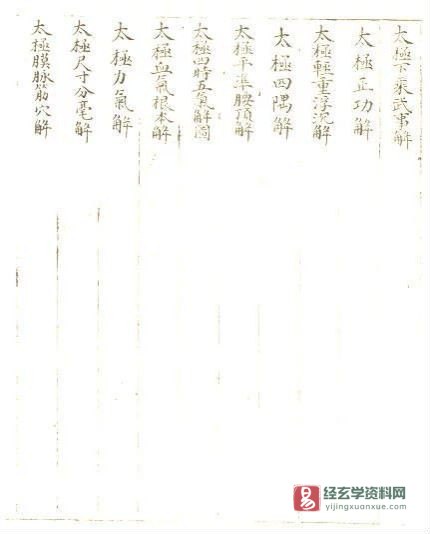 太極下乘武事解
太極正功解
太極輕重浮沉解
太極四隅解
太極平準腰頂解
太極四時五氣解圖
太極血氣根本解
太極力氣解
太極尺寸分毫解
太極膜脉筋穴解
易
经玄学资料网
yijingxuanxue.com